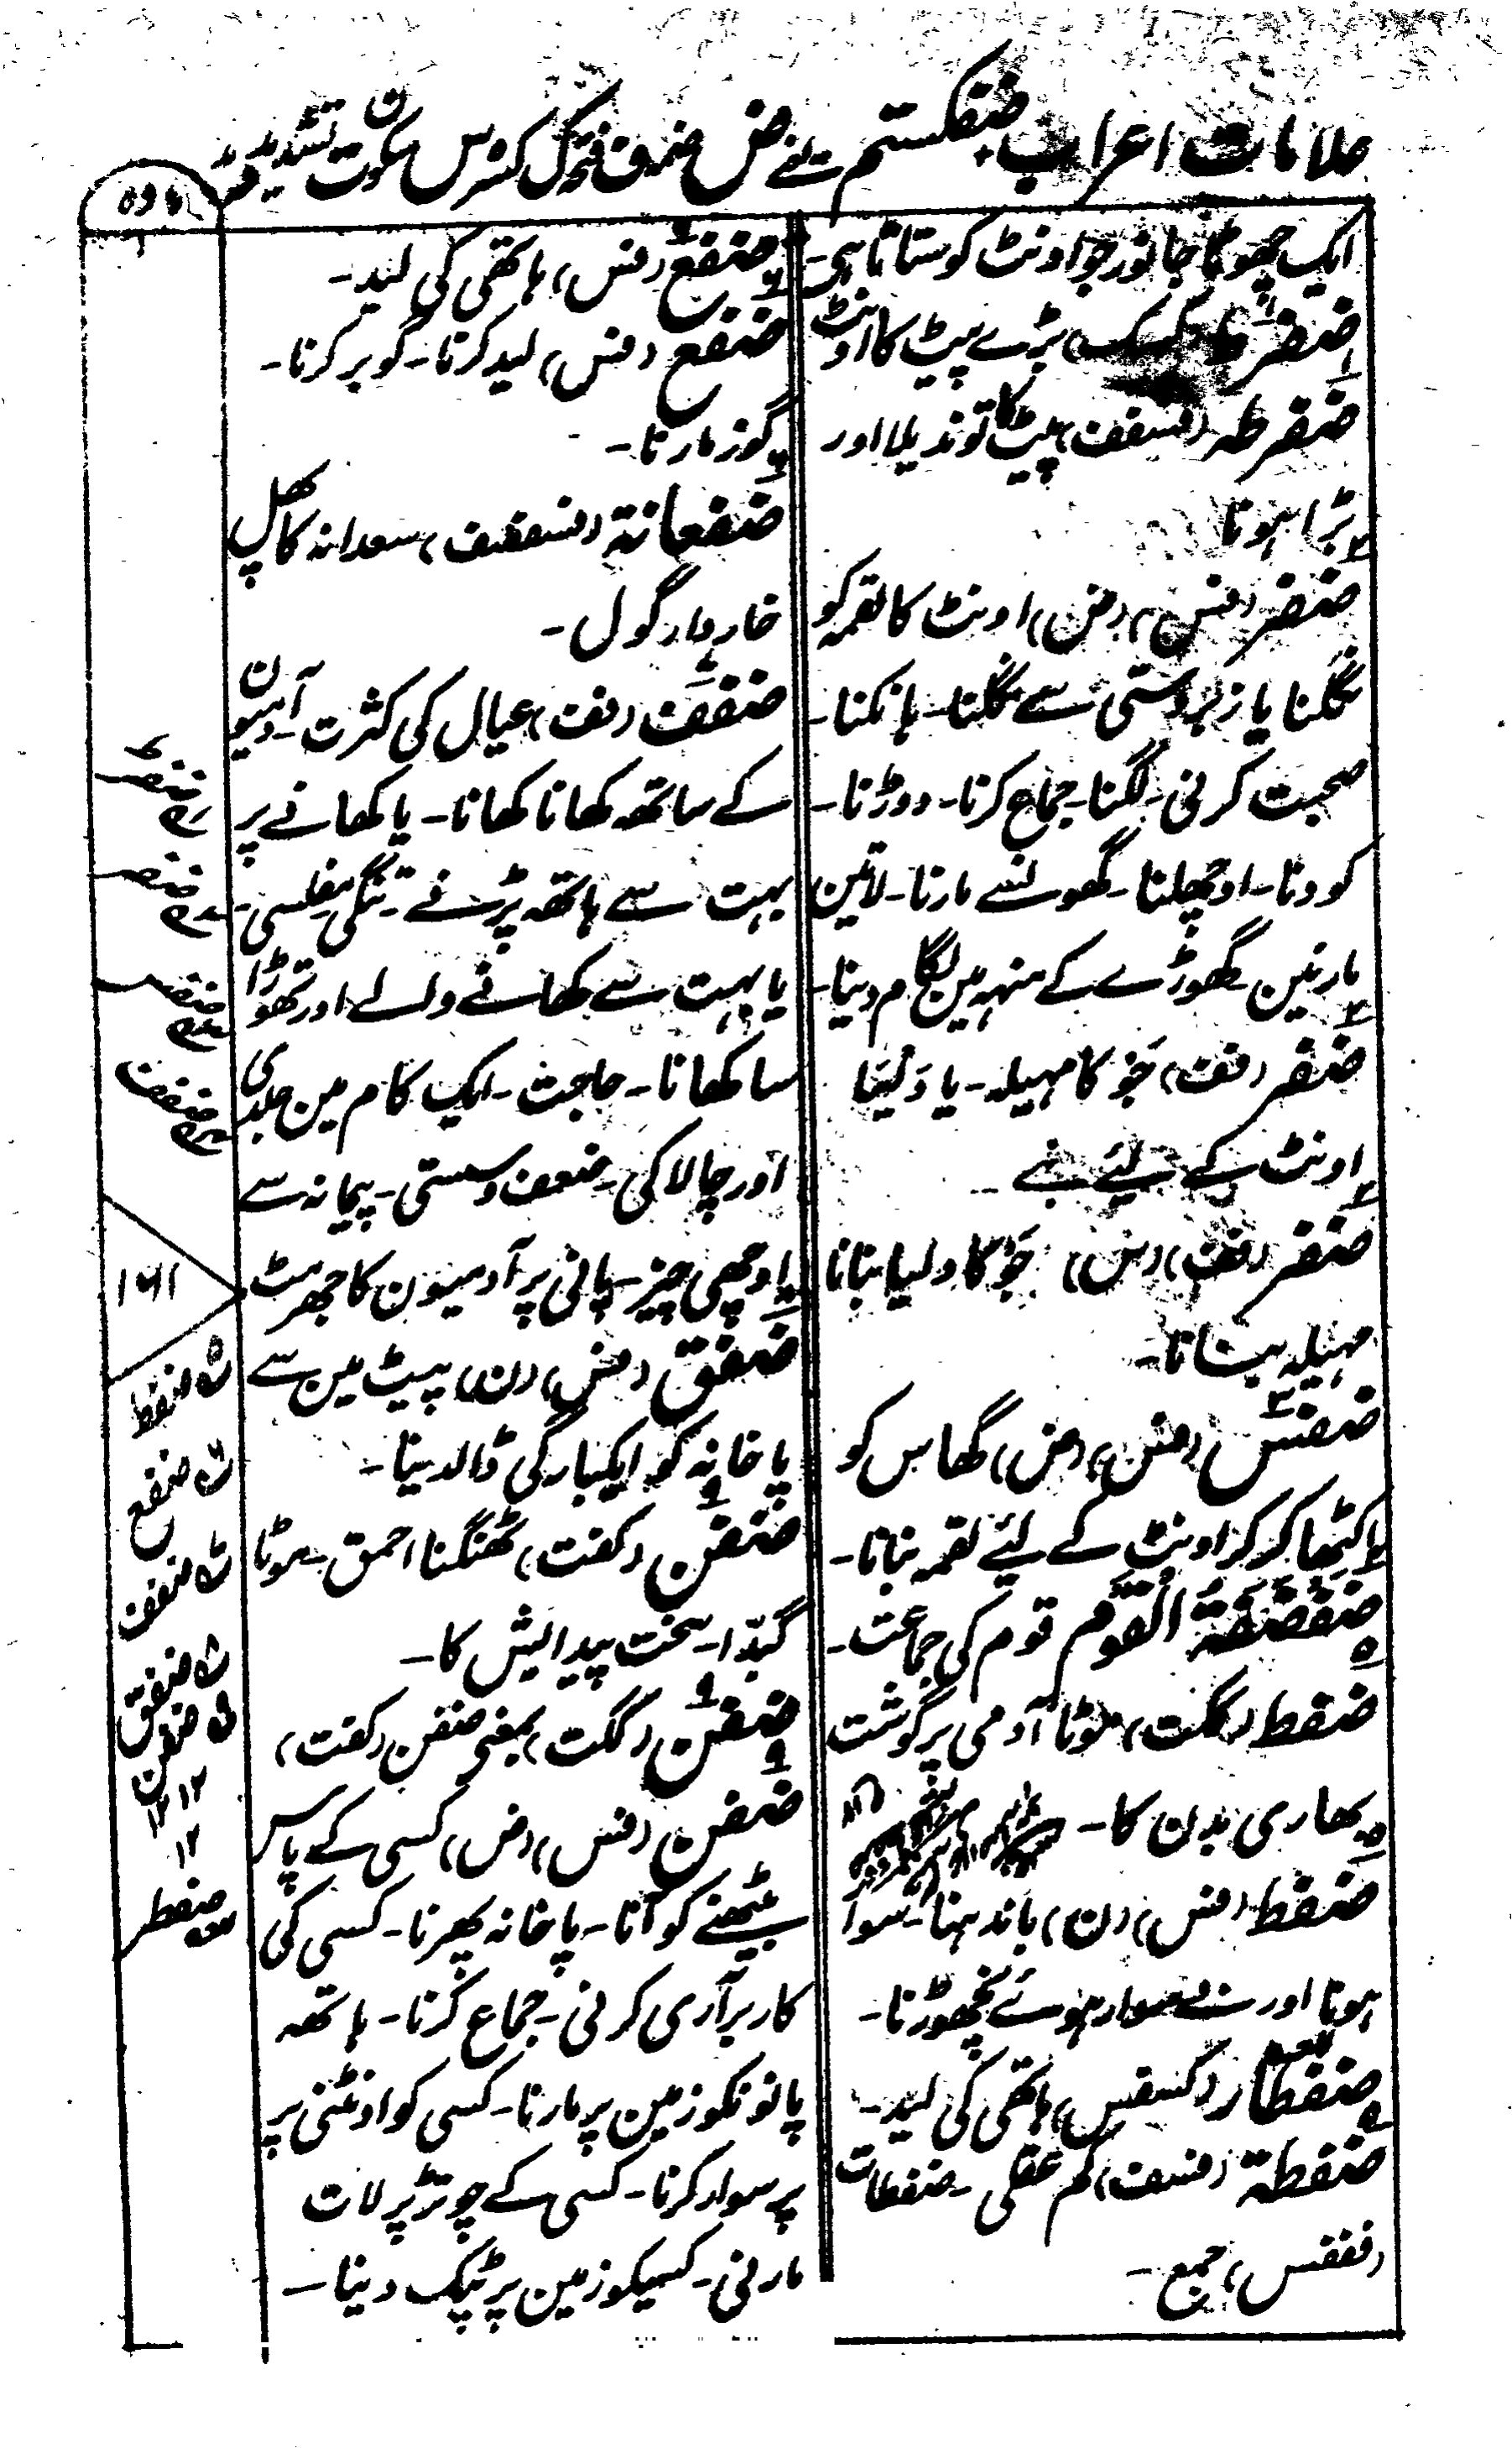 علامات اعراب ضفکستم یعنے ض ضمہ ف فتحہ ک کسرہ س سکون ت تشدید م مد
ایک چھوٹا جانور جو اونٹ کو ستاتا ہی۔
ضفرط بڑے پیٹ کا اونٹ
ضفرطہ (فسفف) پیٹ کا توندیلا اور
بڑا ہونا
ضفز (فس) (ض) اونٹ کا لقمہ کو
نگلنا یا زبردستی سے نگلنا۔ ہانکنا۔
صحبت کرنی۔ لگنا۔ جماع کرنا۔ دوڑنا۔
کودنا۔ اوچھلنا۔ گھونسے مارنا۔ لاتین
مارنین۔ گھوڑے کے منہہ مین لگام دینا۔
ضفز (فف) جَو کا مہیلہ۔ یا دَلیَا
اونٹ کے لیئے ہے
ضفز (فف) (س) جَو کا دلیا بنانا
مہیلہ بنانا۔
ضفس (فس) (ض) گھاس کو
اکٹھا کر کر اونٹ کے لیئے لقمہ بنانا۔
ضَفضَفَةُ القَوم قوم کی جماعت۔
ضفط (فکت) موٹا آدمی پر گوشت
بھاری بدن کا۔
ضفط (فس) (ن) باندہنا۔ سوار
ہونا اور سوار ہوئے نچھوڑنا۔
ضفطار (کسفس) ہاتھی کی لید۔
ضفطة (فسف) کم عقلی۔ ضفطات
(فففس) جمع۔
ضفع (فس) ہاتھی کی لید۔
ضفع (فس) لید کرنا۔ گوبر کرنا۔
گوز مارنا۔
ضفعانة (فسففف) سعدانہ کا پھل
خاردار گول۔
ضفف (فف) عیال کی کثرت۔ آدمیون
کے ساتھہ کھانا کھانا۔ یا کھانے پر
بہت سے ہاتھہ پڑنے۔ تنگی مفلسی۔
یا بہت سے کھانے والے اور تھوڑا
سا کھانا۔ حاجت۔ ایک کام مین جلدی
اور چالاکی۔ ضعف و سستی۔ پیمانہ سے
اوچھی چیز۔ پانی پر آدمیون کا جھرمٹ
ضفق (فس) (ن) پیٹ مین سے
پاخانہ کو ایکبارگی ڈالدینا۔
ضفن (کفت) ٹھنگنا احمق۔ موٹا
گبدّا۔ سخت پیدایش کا۔
ضفن (ککت) بمعنی ضفن (کفت)
ضفن (فس) (ض) کسی کے پاس
بیٹھنے کو آنا۔ پاخانہ پھرنا۔ کسی کی
کاربرآری کرنی۔ جماع کرنا۔ ہاتھہ
پانونکو زمین پر مارنا۔ کسی کو اونٹنی پر
پر سوار کرنا۔ کسی کے چوتڑ پر لات
مارنی۔ کسیکو زمین پر ٹپک دینا۔
ضفرط
ضفز
ضفس
ضفضف
۱۶۱
ضفط
ضفع
ضفف
ضفق
ضفن
۱۲
۱۲
۱۲
ضفطر